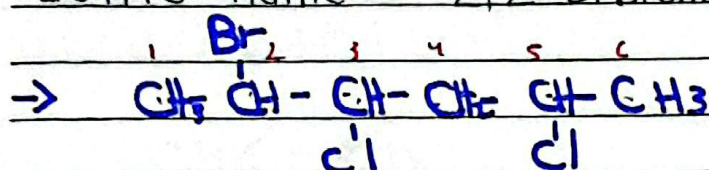 Br
1 2 3 4 5 6
→ CH3 - CH - CH - CH2 - CH - CH3
Cl Cl